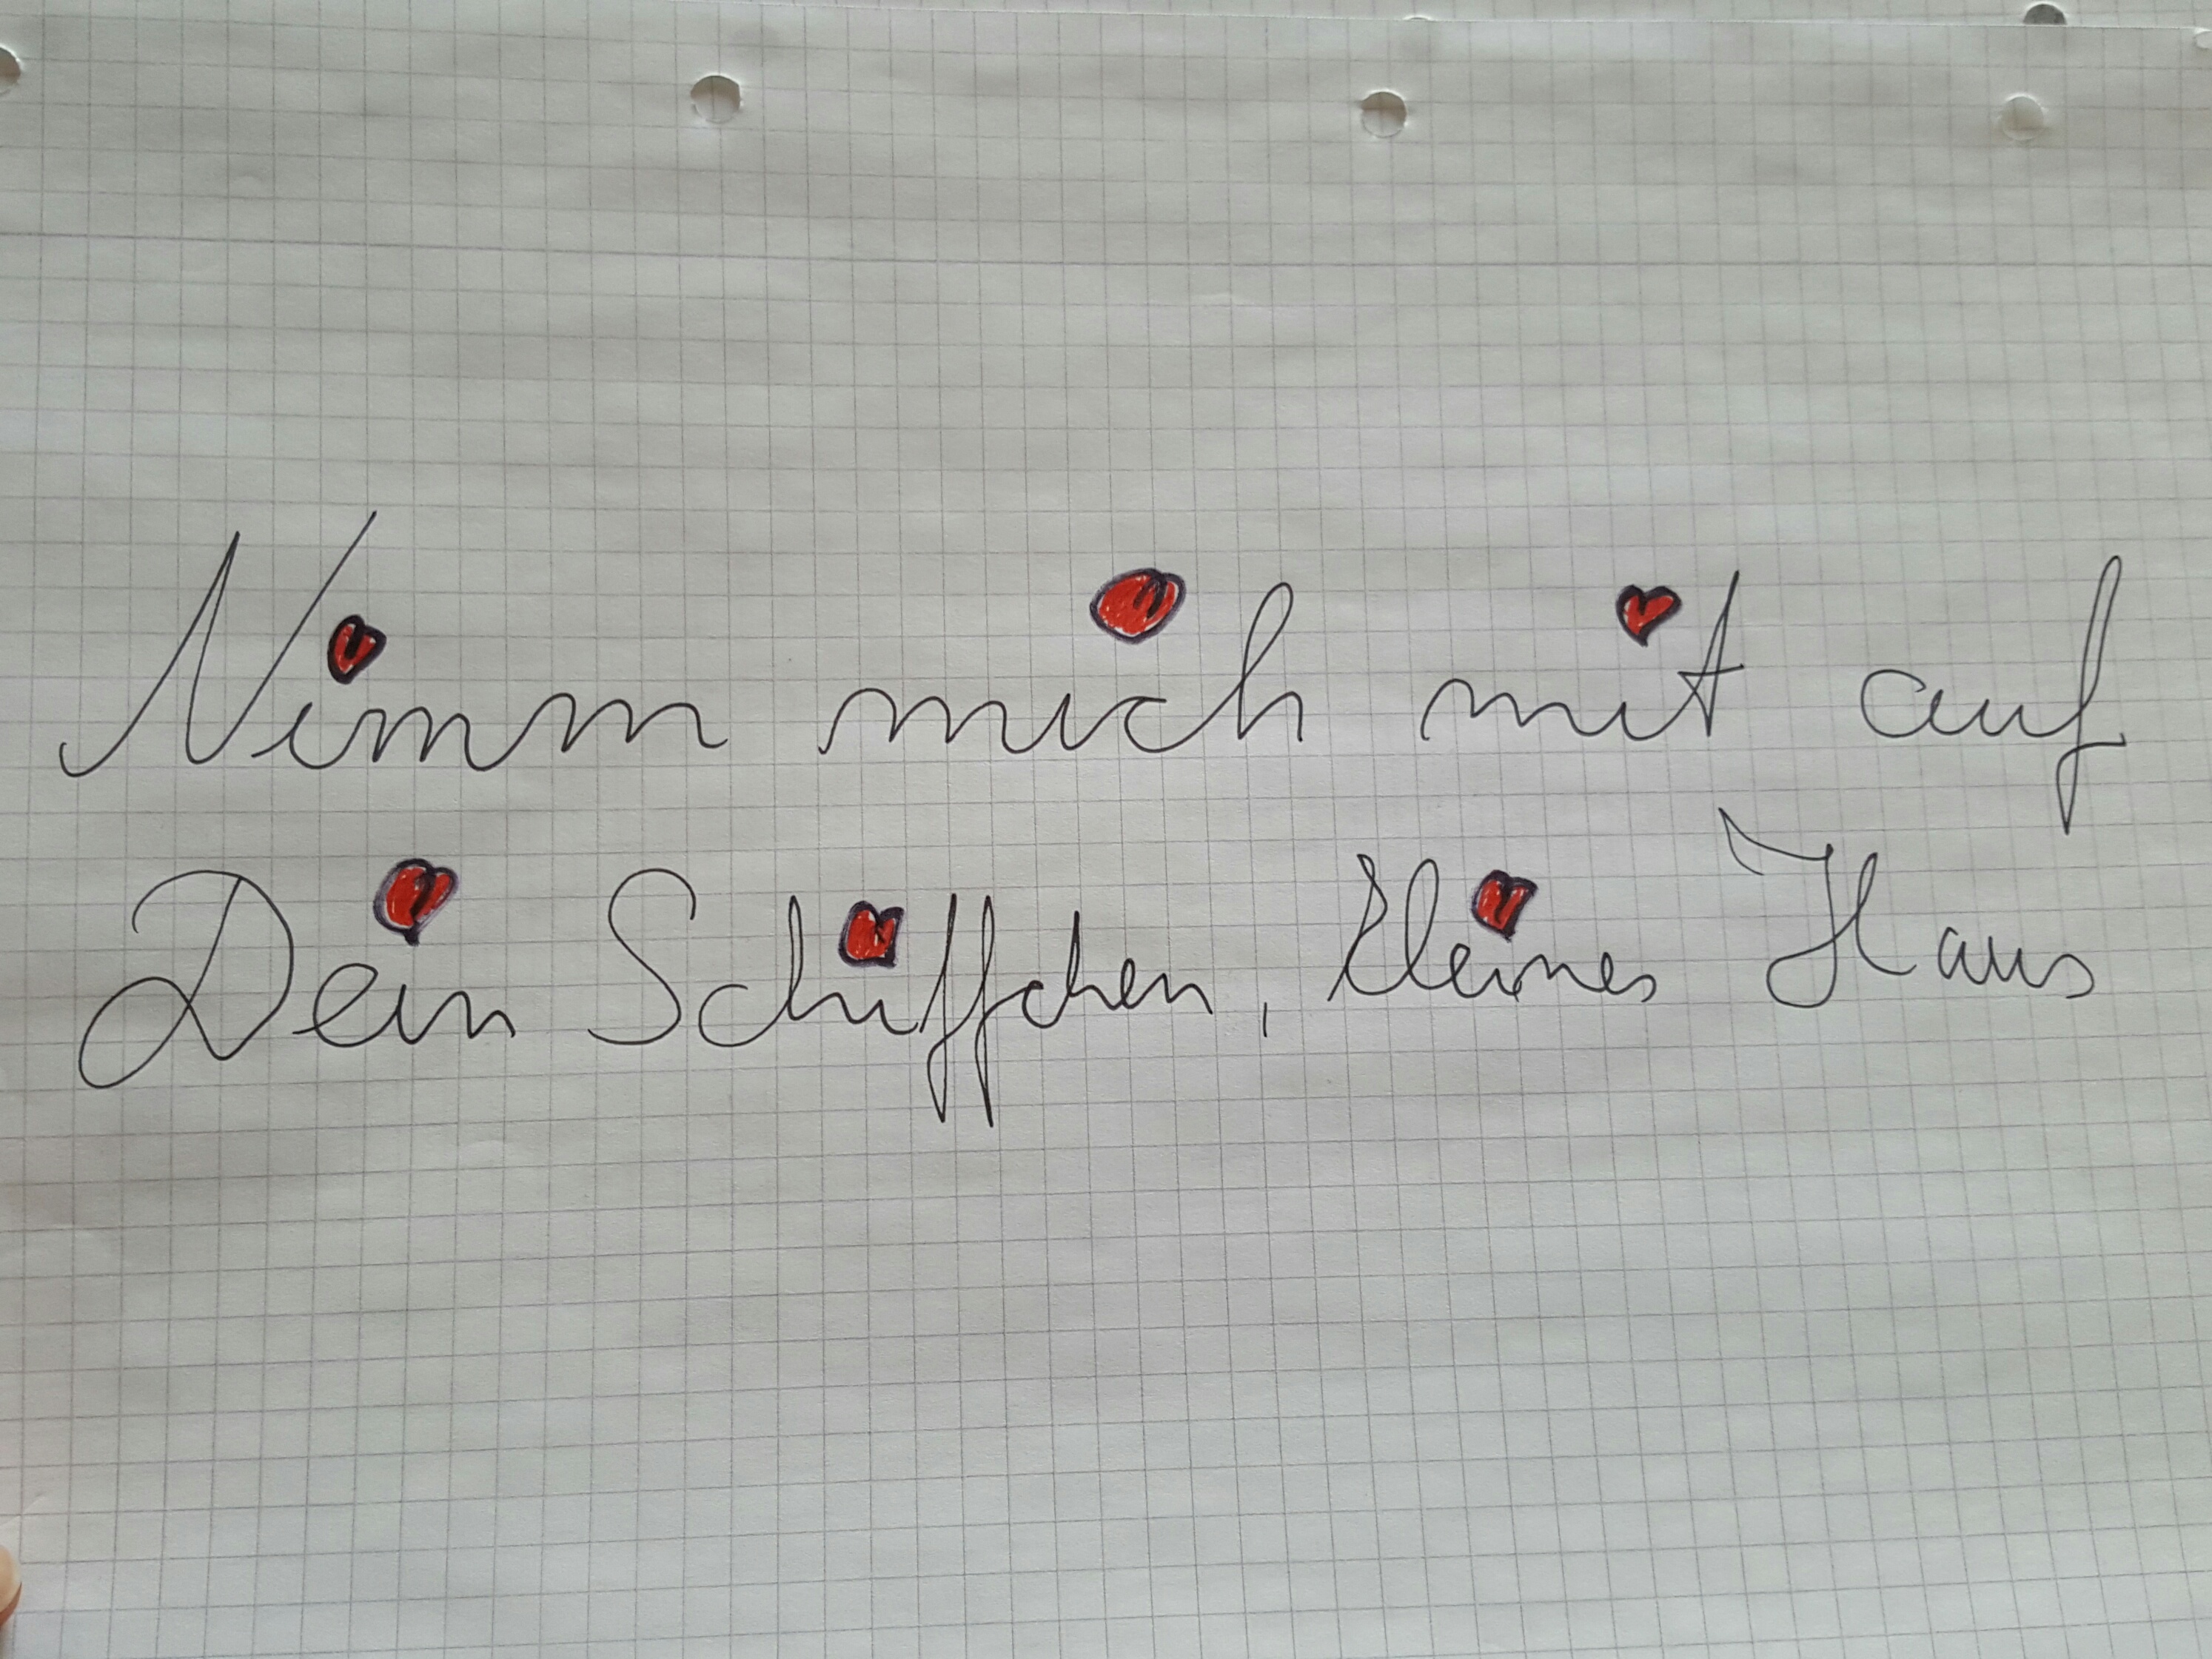 Nimm mich mit auf
Dein Schiffchen, kleines Haus